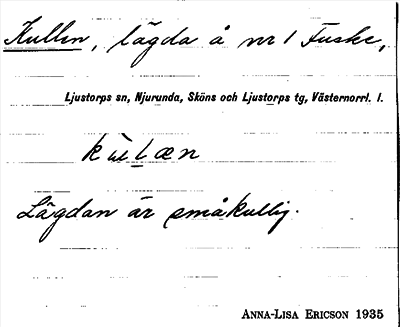 Kullen, lägda å nr 1 Fuske,
Ljustorps sn, Njurunda, Sköns och Ljustorps tg, Västernorrl. l.
Lägdan är småkullig.
ANNA-LISA ERICSON 1935